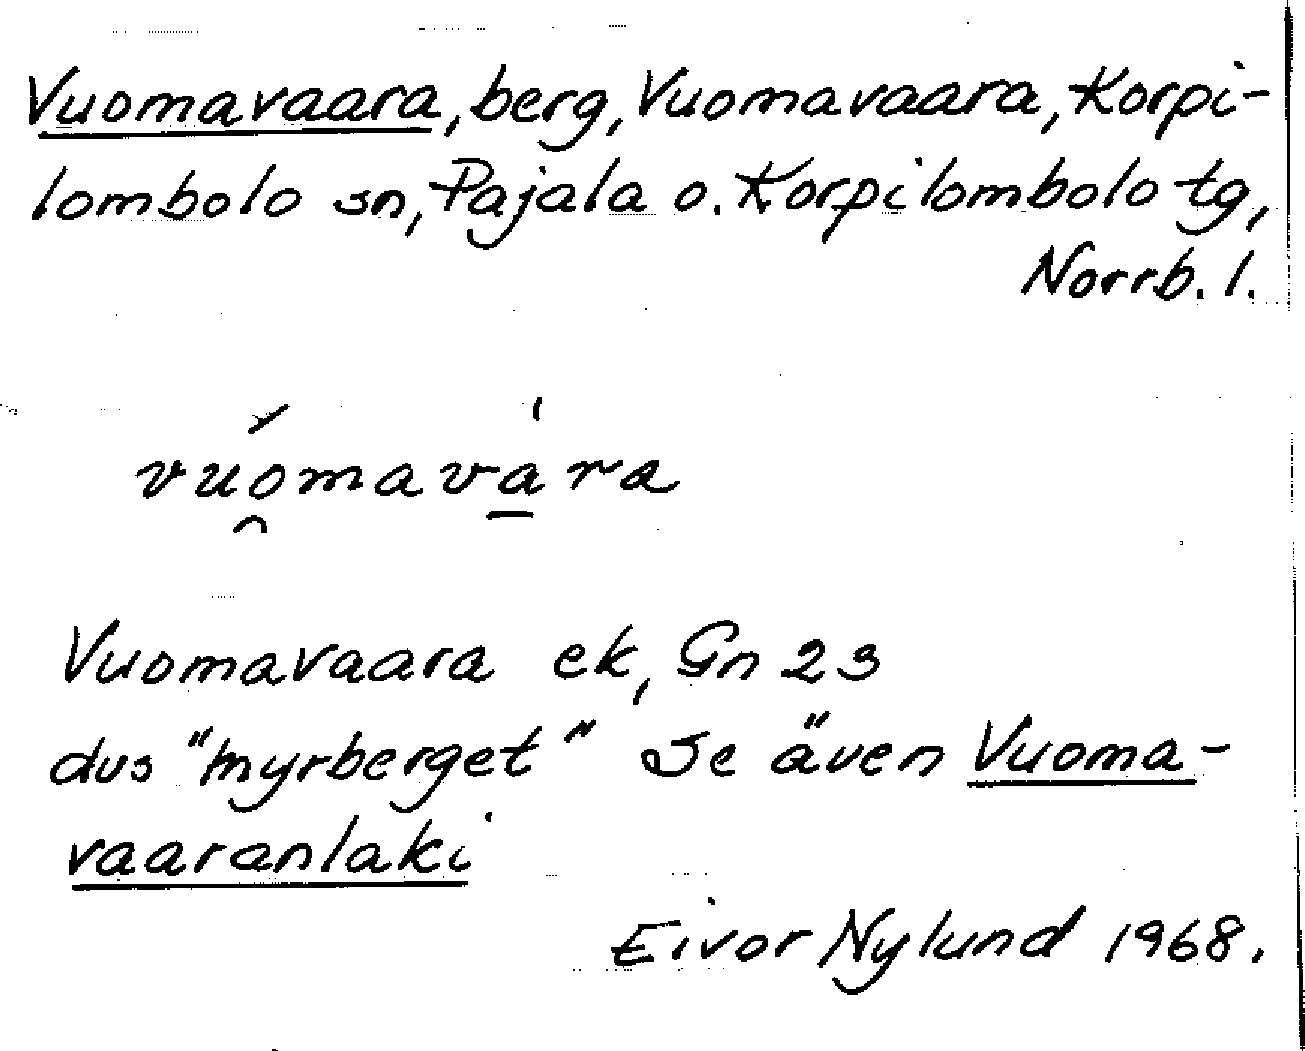 Vuomavaara, berg, Vuomavaara, Korpi-
lombolo sn, Pajala o. Korpilombolo tg,
Norrb. l.
vu̯ómava̱̍ra
Vuomavaara ek, Gn 23
dvs "myrberget" Se även Vuoma-
vaaranlaki
Eivor Nylund 1968.